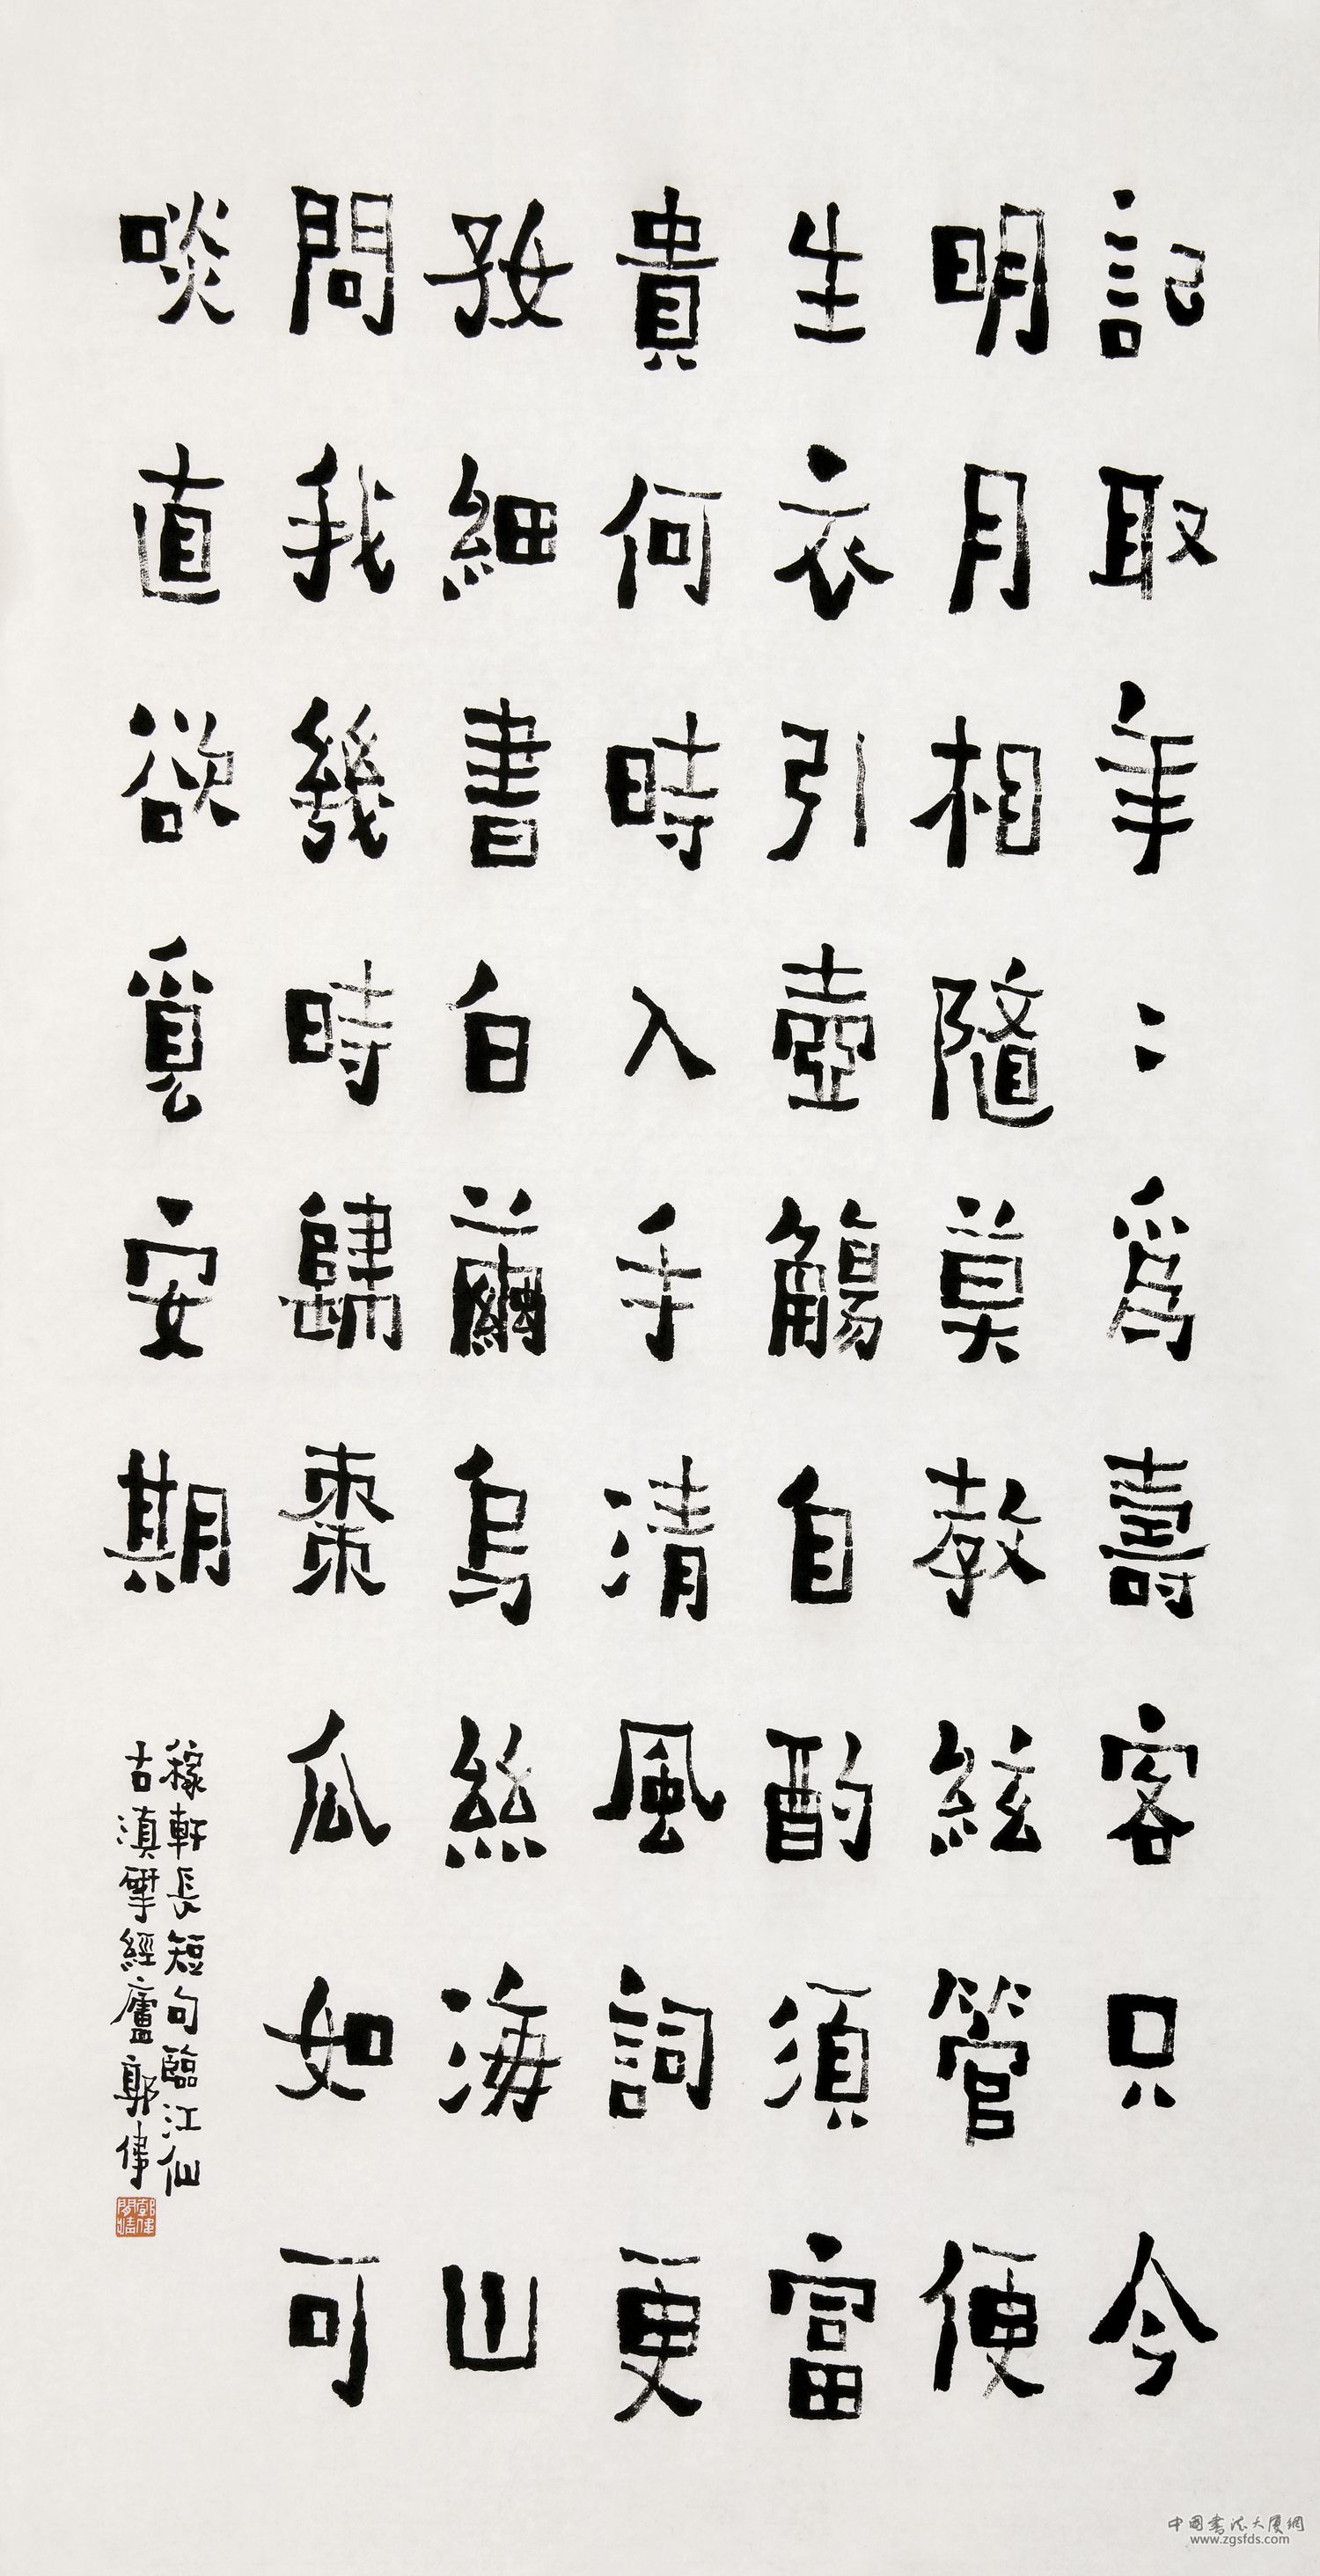 記取年〻爲壽客只今
明月相隨莫教絃管便
生衣引壺觴自酌須富
貴何時入手清風詞更
好細書白繭烏絲海山
問我幾時歸棗瓜如可
啖直欲覓安期
稼軒長短句臨江仙
古滇寫經廬郭偉
中国书法大厦網
www.zgsfds.com